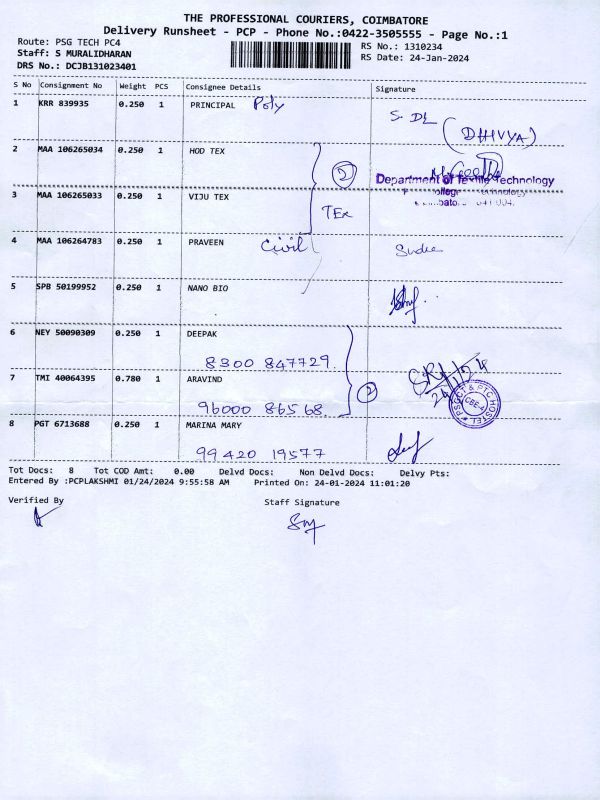 THE PROFESSIONAL COURIERS, COIMBATORE
Delivery Runsheet - PCP - Phone No.:0422-3505555 - Page No.:1
Route: PSG TECH PC4
RS No.: 1310234
Staff: S MURALIDHARAN
RS Date: 24-Jan-2024
DRS No.: DCJB131023401
S No Consignment No Weight PCS Consignee Details Signature
1 KRR 839935 0.250 1 PRINCIPAL Poly
S. DL
(DHIVYA)
2 MAA 106265034 0.250 1 HOD TEX
2
Department of Textile Technology
3 MAA 106265033 0.250 1 VIJU TEX
TEX
4 MAA 106264783 0.250 1 PRAVEEN Civil
5 SPB 50199952 0.250 1 NANO BIO
6 NEY 50090309 0.250 1 DEEPAK
8300 847729.
7 TMI 40064395 0.780 1 ARAVIND
2
96000 86568.
8 PGT 6713688 0.250 1 MARINA MARY
99420 19577
Tot Docs: 8 Tot COD Amt: 0.00 Delvd Docs: Non Delvd Docs: Delvy Pts:
Entered By :PCPLAKSHMI 01/24/2024 9:55:58 AM Printed On: 24-01-2024 11:01:20
Verified By Staff Signature